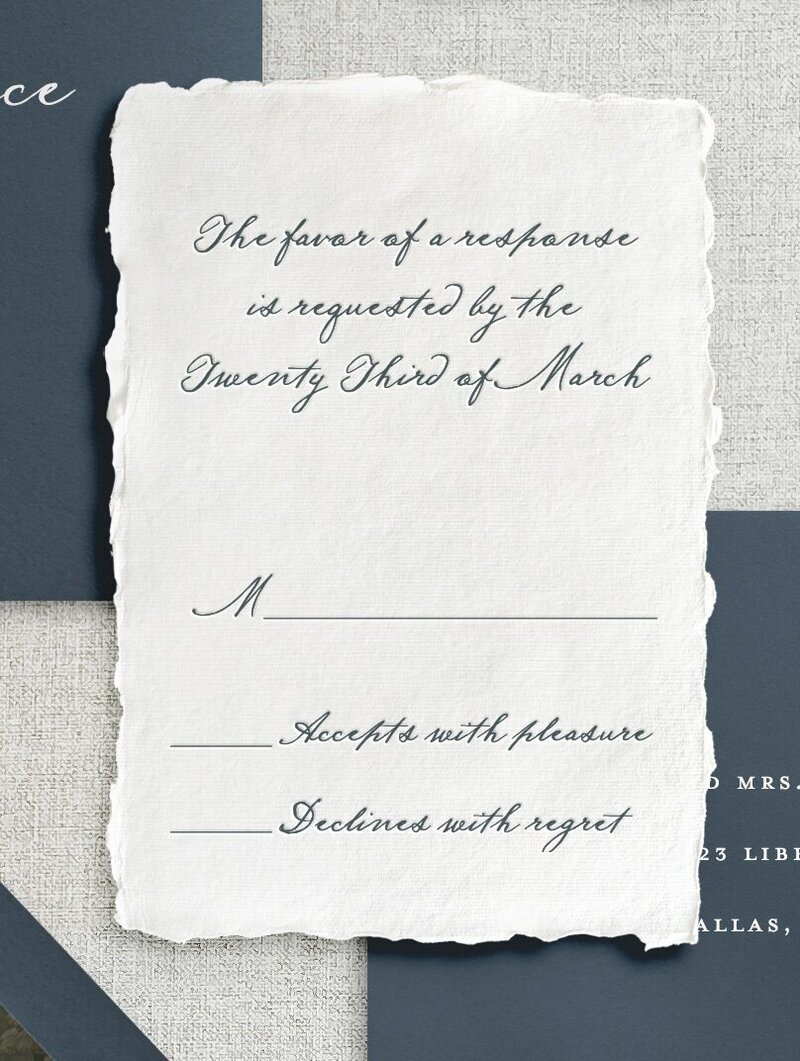 The favor of a response
is requested by the
Twenty Third of March
M
Accepts with pleasure
Declines with regret
MRS.